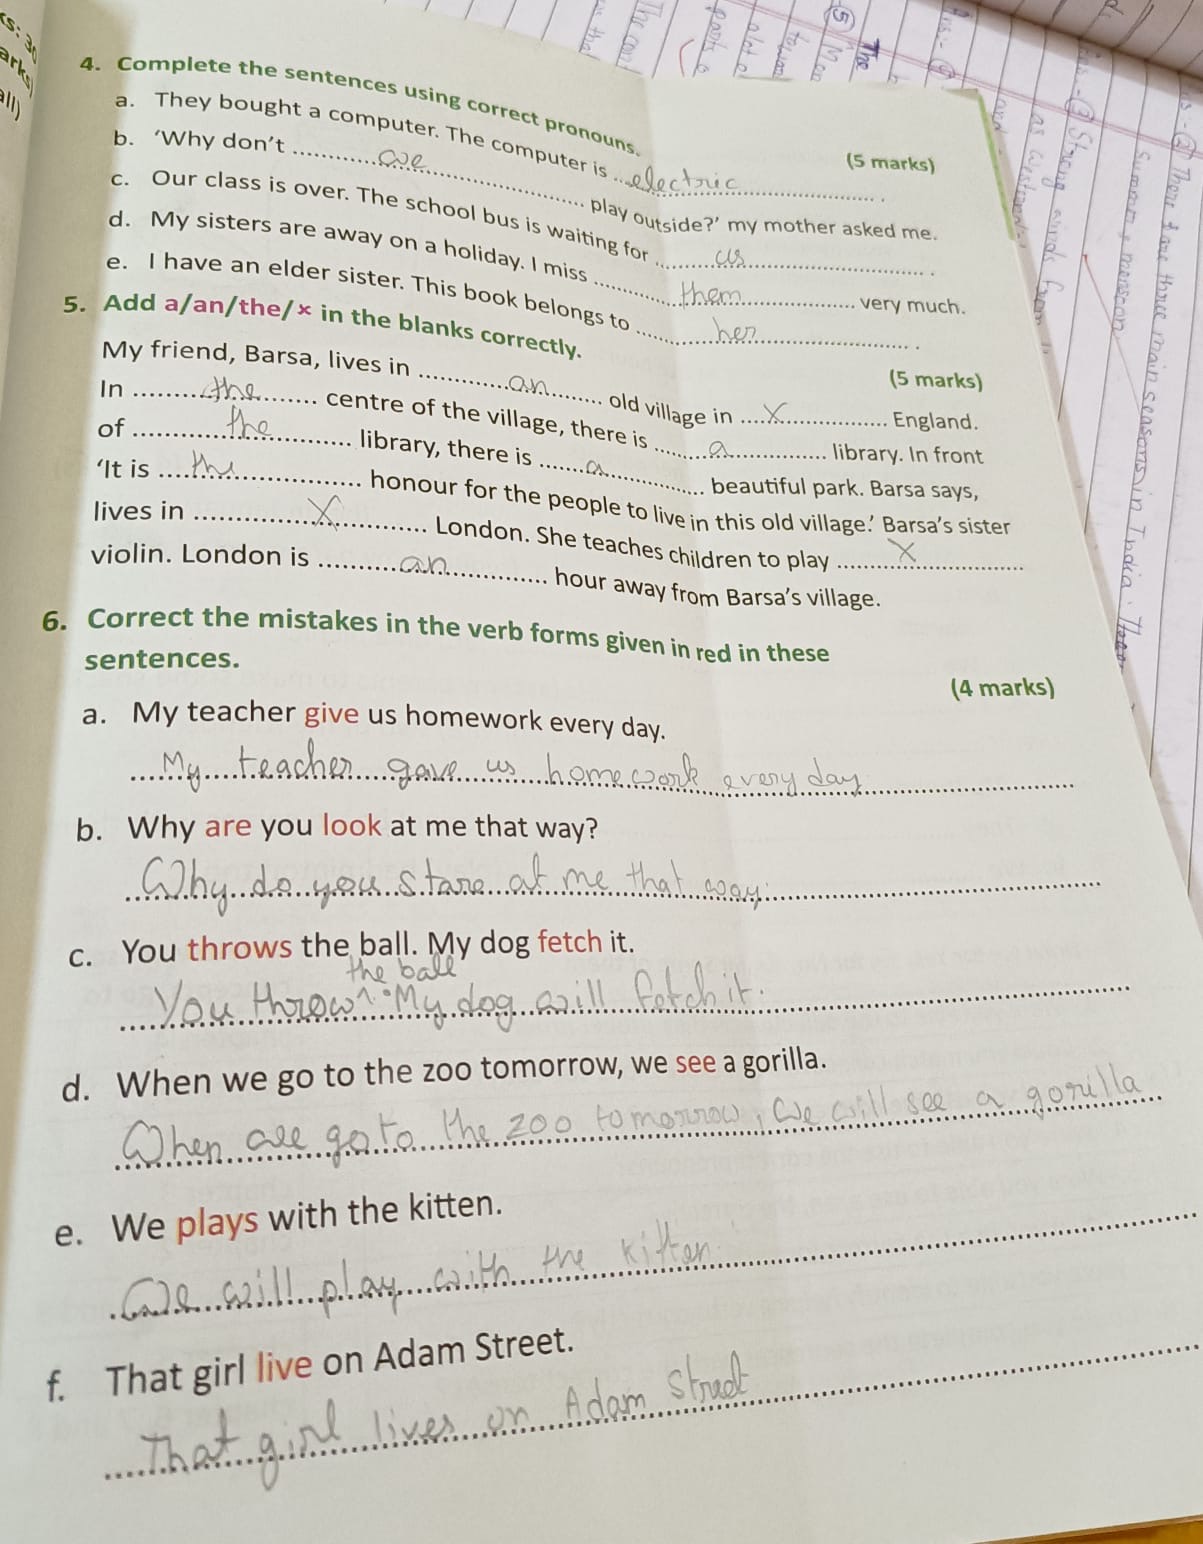 4. Complete the sentences using correct pronouns.
(5 marks)
a. They bought a computer. The computer is electric.
b. ‘Why don’t we play outside?’ my mother asked me.
c. Our class is over. The school bus is waiting for us.
d. My sisters are away on a holiday. I miss them very much.
e. I have an elder sister. This book belongs to her.
5. Add a/an/the/× in the blanks correctly.
(5 marks)
My friend, Barsa, lives in an old village in X England.
In the centre of the village, there is a library. In front
of the library, there is a beautiful park. Barsa says,
‘It is the honour for the people to live in this old village.’ Barsa’s sister
lives in X London. She teaches children to play X
violin. London is an hour away from Barsa’s village.
6. Correct the mistakes in the verb forms given in red in these
sentences.
(4 marks)
a. My teacher give us homework every day.
My teacher gave us homework every day
b. Why are you look at me that way?
Why do you stare at me that way
c. You throws the ball. My dog fetch it.
the ball
You throw^. My dog will fetch it.
d. When we go to the zoo tomorrow, we see a gorilla.
When we go to the zoo tomorrow, we will see a gorilla
e. We plays with the kitten.
We will play with the kitten
f. That girl live on Adam Street.
That girl lives on Adam Street
There are three main seasons in India.
Summer, monsoon,
Strong winds from